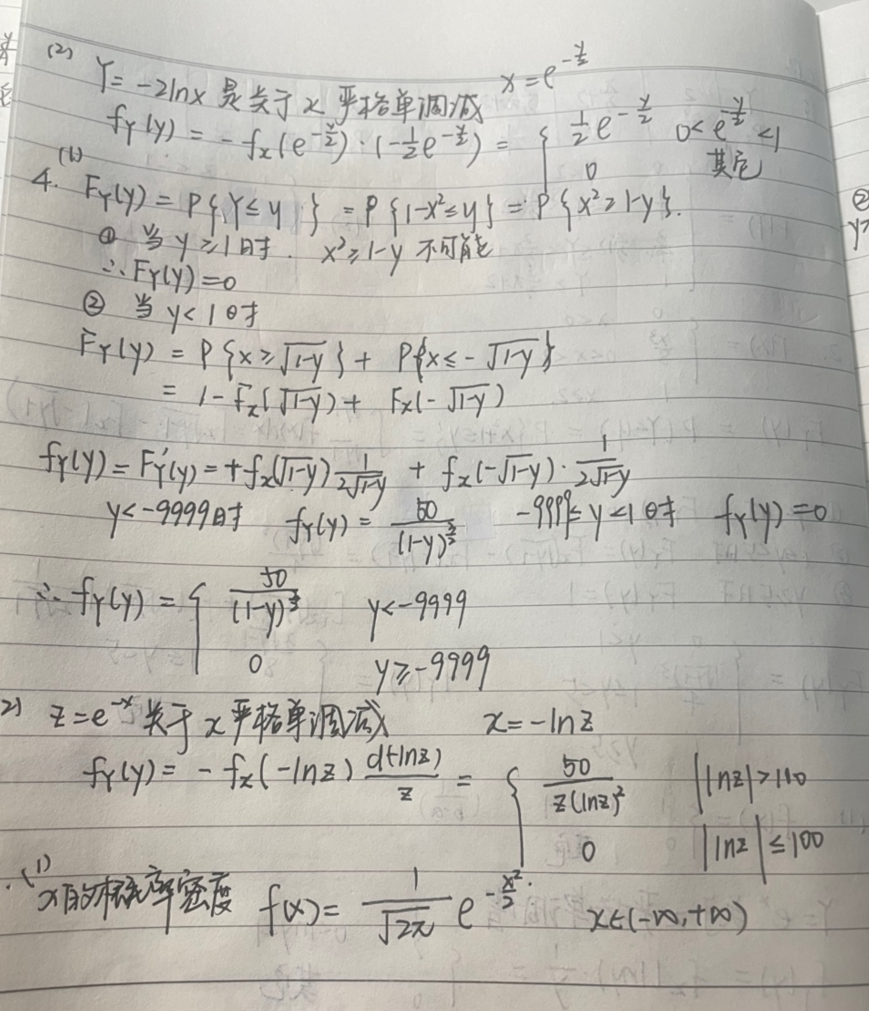 (2)
Y = -2lnx 是关于 x 严格单调减 x = e^{-y/2}
f_Y(y) = -f_x(e^{-y/2})·(-1/2 e^{-y/2}) = { 1/2 e^{-y/2} 0<e^{-y/2}<1
0 其它
4. (1) F_Y(y) = P{Y≤y} = P{1-x²≤y} = P{x²≥1-y}.
① 当 y≥1时. x²≥1-y 不可能
∴ F_Y(y)=0
② 当 y<1时
F_Y(y) = P{x≥√(1-y)} + P{x≤-√(1-y)}
= 1-F_x(√(1-y)) + F_x(-√(1-y))
f_Y(y) = F_Y'(y) = +f_x(√(1-y)) 1/(2√(1-y)) + f_x(-√(1-y))· 1/(2√(1-y))
y<-9999时 f_Y(y) = 50/(1-y)^{3/2} -9999≤y<1时 f_Y(y)=0
∴ f_Y(y) = { 50/(1-y)^{3/2} y<-9999
0 y≥-9999
2) z=e^{-x} 关于 x 严格单调减 x=-lnz
f_Y(y) = -f_x(-lnz) d(-lnz)/z = { 50/(z(lnz)²) |lnz|>100
0 |lnz|≤100
.(1)
x的概率密度 f(x) = 1/√(2π) e^{-x²/2}. x∈(-∞,+∞)
②